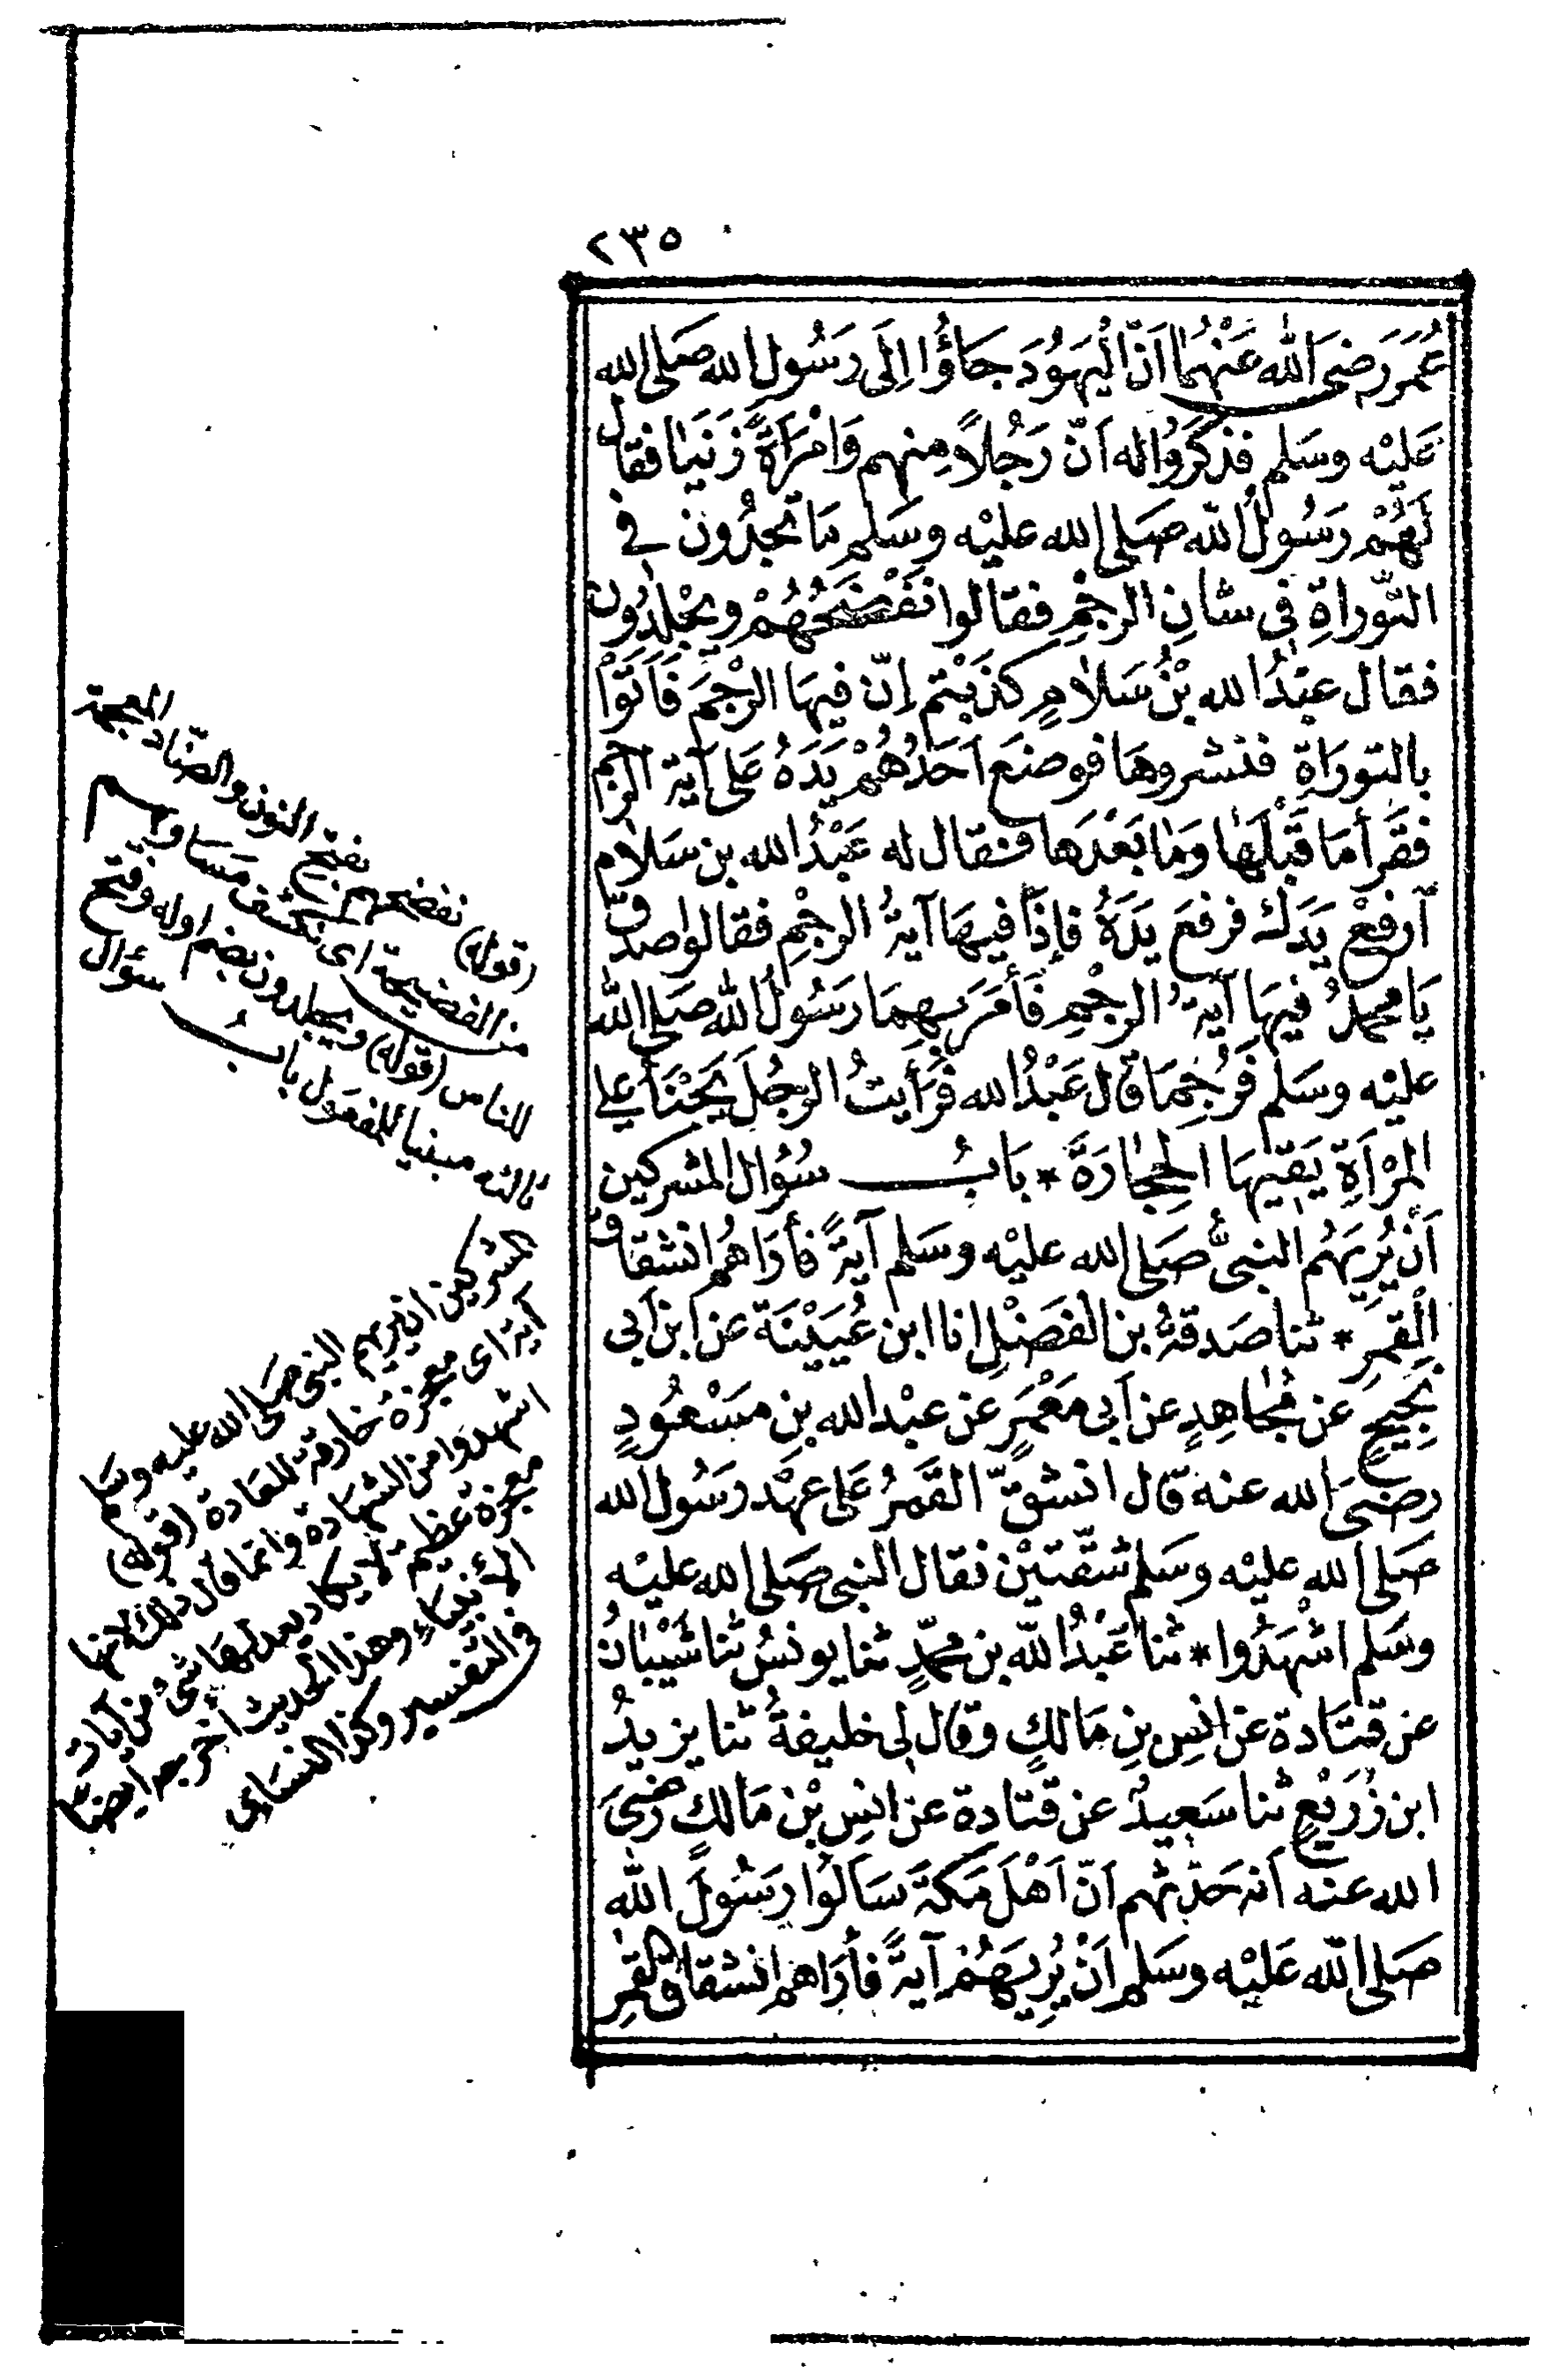 ٢٣٥
عُمَرَ رَضِىَ اللّٰه عَنْهُمَا اَنّ الْيَهُودَ جَاؤُا اِلَى رَسُولِ الله صَلى الله
عَليْه وسَلم فذكَرُوا له اَنّ رَجُلاً منهم وَامْرَأةً زَنَيَا فقال
لَهُمْ رَسُولُ اللّه صَلى الله عليْه وسَلم مَا تَجِدُون في
التّوراةِ فى شانِ الرجْمِ فقالوا نَفْضَحُهُمْ ويُجْلَدُون
فقال عبْدُ الله بْنُ سَلامٍ كذَبْتم اِنّ فيهَا الرجْمَ فَاَتَوْا
بالتورَاةِ فنشروهَا فوضَع اَحَدُهُمْ يَدَهُ عَلى آية الرجم
فقَرأ مَا قَبْلَهَا وَمَا بَعْدَها فقال له عَبْدُ الله بن سَلام
اَرفعْ يَدَك فرفعَ يَدَهُ فإذَا فيهَا آيةُ الرجْمِ فقالوا صدق
يَا محمدُ فيهَا آيةُ الرجْمِ فَأمَرَ بهِمَا رَسُولُ اللّٰه صَلى اللّٰه
عليْه وسَلم فَرُجِمَا قال عَبْدُ الله فَرَأيتُ الرجُلَ يَجْنَأ على
المرْأَةِ يَقيهَا الحِجَارَةَ * بَابُ سُؤال المشركين
اَنْ يُرِيَهُم النبىُّ صَلى الله عليْه وسَلم آيةً فأرَاهُم انشقاق
الْقمَرِ * ثنا صَدقةُ بن الفَضْلِ انا ابن عُيَيْنَة عن ابن اَبى
نجِيحٍ عن مُجاهِدٍ عن اَبى مَعْمَرٍ عن عبْد الله بنِ مَسْعُودٍ
رضىَ الله عنه قال انشقّ القَمَرُ عَلى عهْد رَسُول الله
صَلى الله عليْه وسَلم شقّتيْن فقال النبى صَلى الله عليْه
وسَلم اشْهَدُوا * ثنا عَبْدُ اللّه بن محمّدٍ ثنا يونسُ ثنا شَيْبانُ
عن قتَادة عن انسِ بنِ مَالكٍ وقال لى خليفةُ ثنا يزيدُ
ابن زُرَيْعٍ ثنا سَعِيدٌ عن قتادة عن انسِ بْن مَالكٍ رَضىَ
الله عنه اَنه حَدّثهم اَنّ اَهْلَ مَكةَ سَاَلُوا رَسُولَ اللّٰه
صَلى اللّه عَليْه وسَلم اَنْ يُرِيَهُمْ آيةً فأرَاهم انشقاق القمرِ
(قوله) نفضحهم بفتح النون والضّاد المعجمة
من الفضيحة اى نكشف مسَاويهم
للناس (قوله) ويجلدون بضم اوله وفتح
ثالثه مبنيا للمفعول بابُ سؤال
المشركين ان يريهم النبى صَلى الله عليه وسَلم
آية اى معجزة خارقة للعَادة (قوله)
اشهدوا من الشهَادة وانما قال ذلك لانها
معجزة عظيمة لا يكاد يعدلها شئ من آيات
الأنبياء وهذا الحديث اخرجه ايضًا
فى التفسير وكذا النسَاى